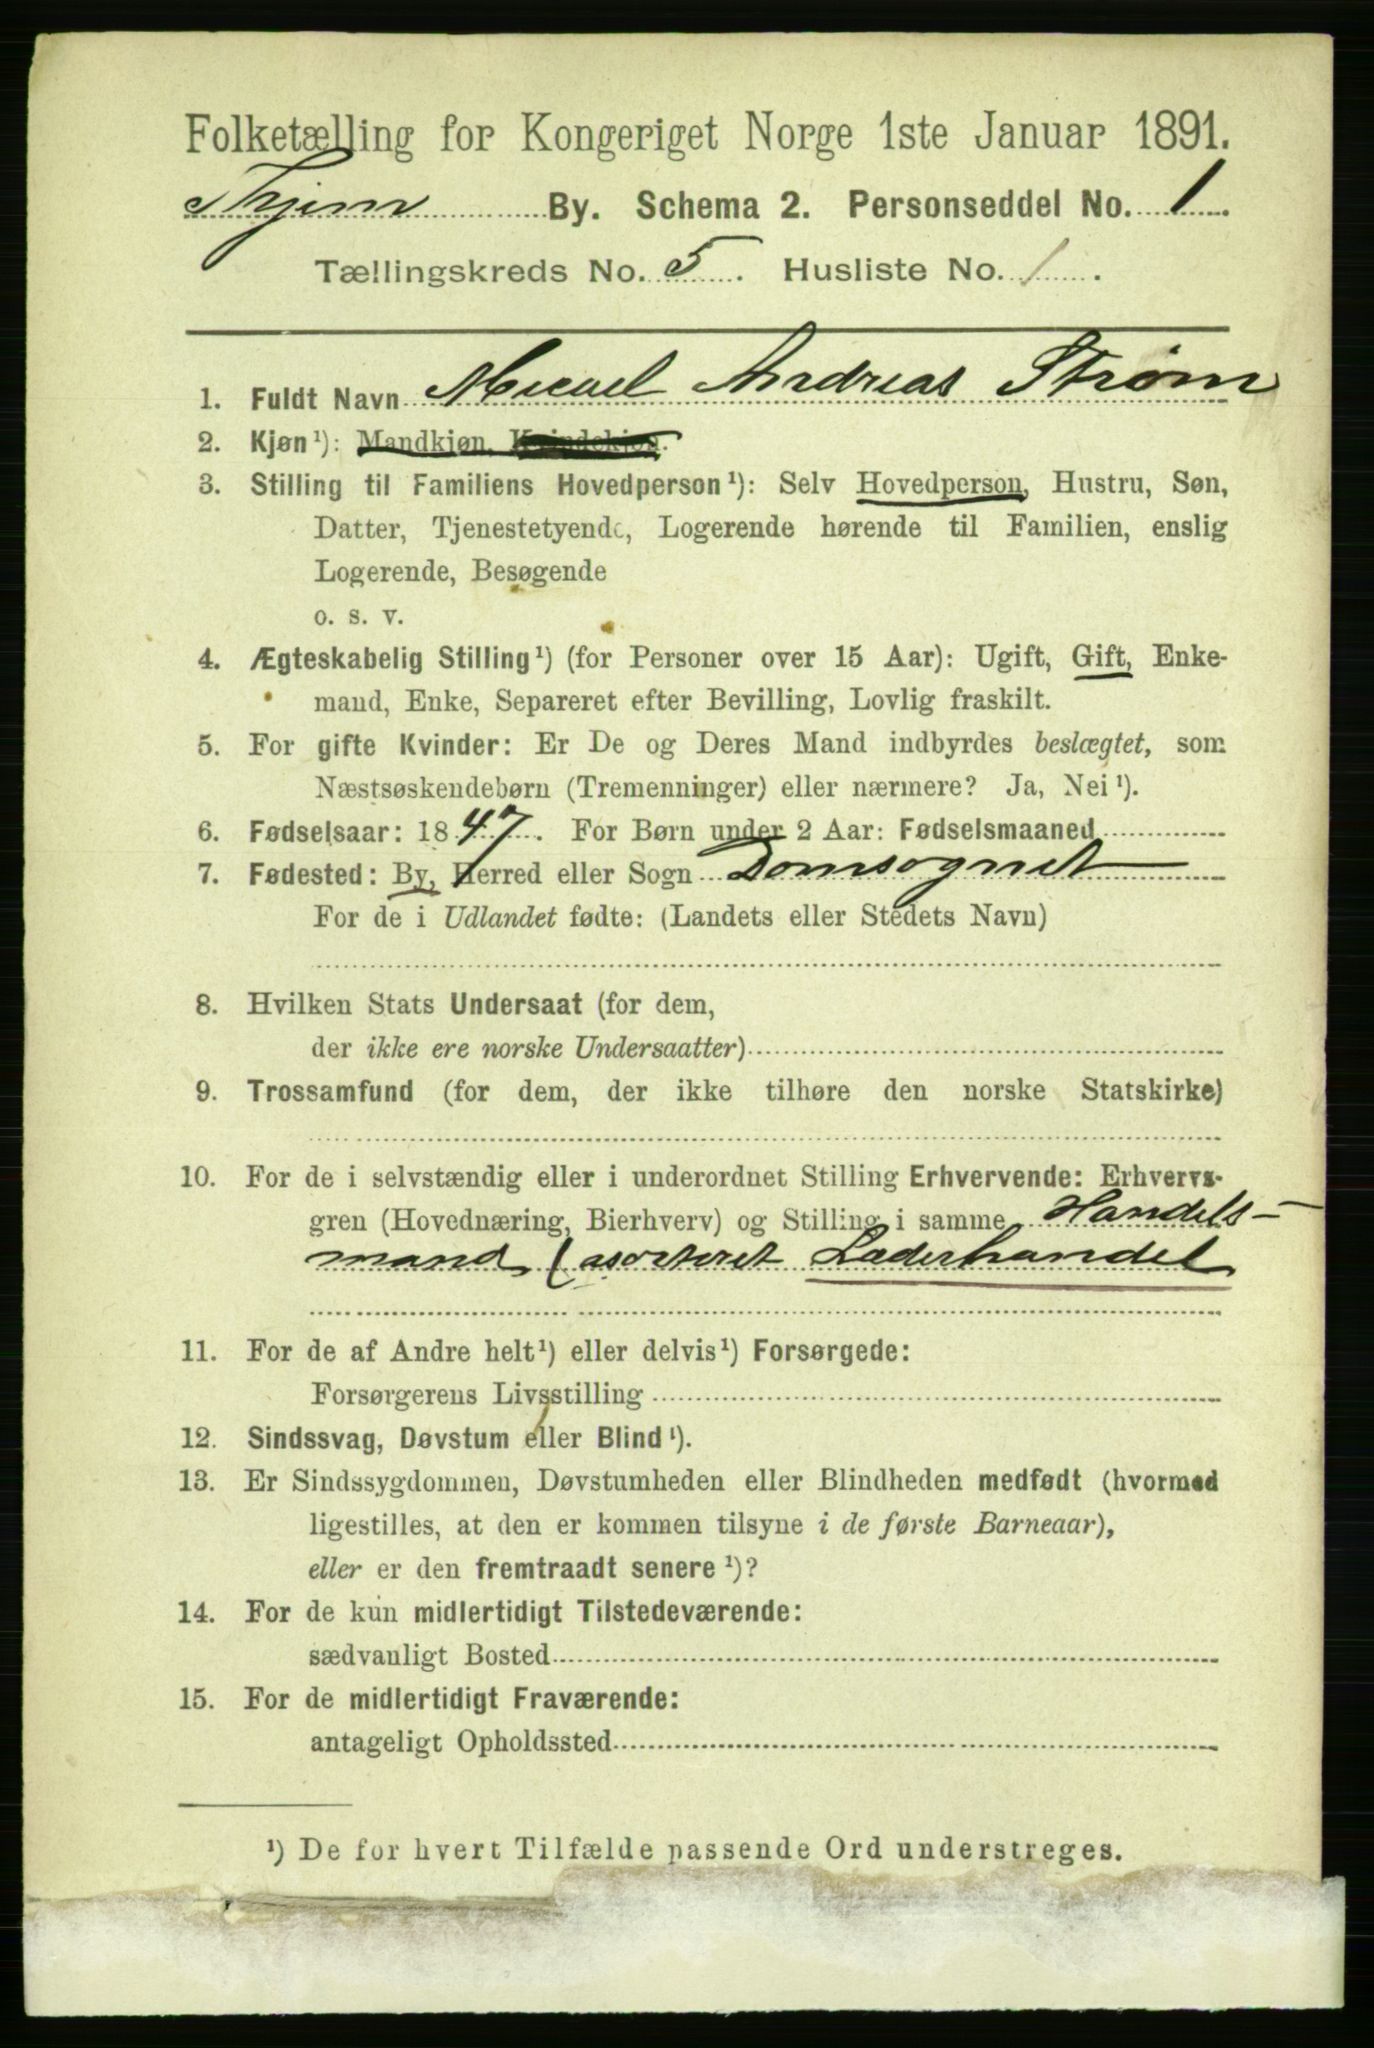 Folketælling for Kongeriget Norge 1ste Januar 1891.
Thjem By. Schema 2. Personseddel No. 1
Tællingskreds No. 5. Husliste No. 1.
1. Fuldt Navn Micael Andreas Strøm
2. Kjøn ¹): Mandkjøn, Kvindekjøn.
3. Stilling til Familiens Hovedperson ¹): Selv Hovedperson, Hustru, Søn,
Datter, Tjenestetyende, Logerende hørende til Familien, enslig
Logerende, Besøgende
o. s. v.
4. Ægteskabelig Stilling ¹) (for Personer over 15 Aar): Ugift, Gift, Enke-
mand, Enke, Separeret efter Bevilling, Lovlig fraskilt.
5. For gifte Kvinder: Er De og Deres Mand indbyrdes beslægtet, som
Næstsøskendebørn (Tremenninger) eller nærmere? Ja, Nei ¹).
6. Fødselsaar: 1847. For Børn under 2 Aar: Fødselsmaaned
7. Fødested: By, Herred eller Sogn Domsognet
For de i Udlandet fødte: (Landets eller Stedets Navn)
8. Hvilken Stats Undersaat (for dem,
der ikke ere norske Undersaatter)
9. Trossamfund (for dem, der ikke tilhøre den norske Statskirke)
10. For de i selvstændig eller i underordnet Stilling Erhvervende: Erhvervs-
gren (Hovednæring, Bierhverv) og Stilling i samme Handels-
mand (asorteret Læderhandel
11. For de af Andre helt ¹) eller delvis ¹) Forsørgede:
Forsørgerens Livsstilling
12. Sindssvag, Døvstum eller Blind ¹).
13. Er Sindssygdommen, Døvstumheden eller Blindheden medfødt (hvormed
ligestilles, at den er kommen tilsyne i de første Barneaar),
eller er den fremtraadt senere ¹)?
14. For de kun midlertidigt Tilstedeværende:
sædvanligt Bosted
15. For de midlertidigt Fraværende:
antageligt Opholdssted
¹) De for hvert Tilfælde passende Ord understreges.